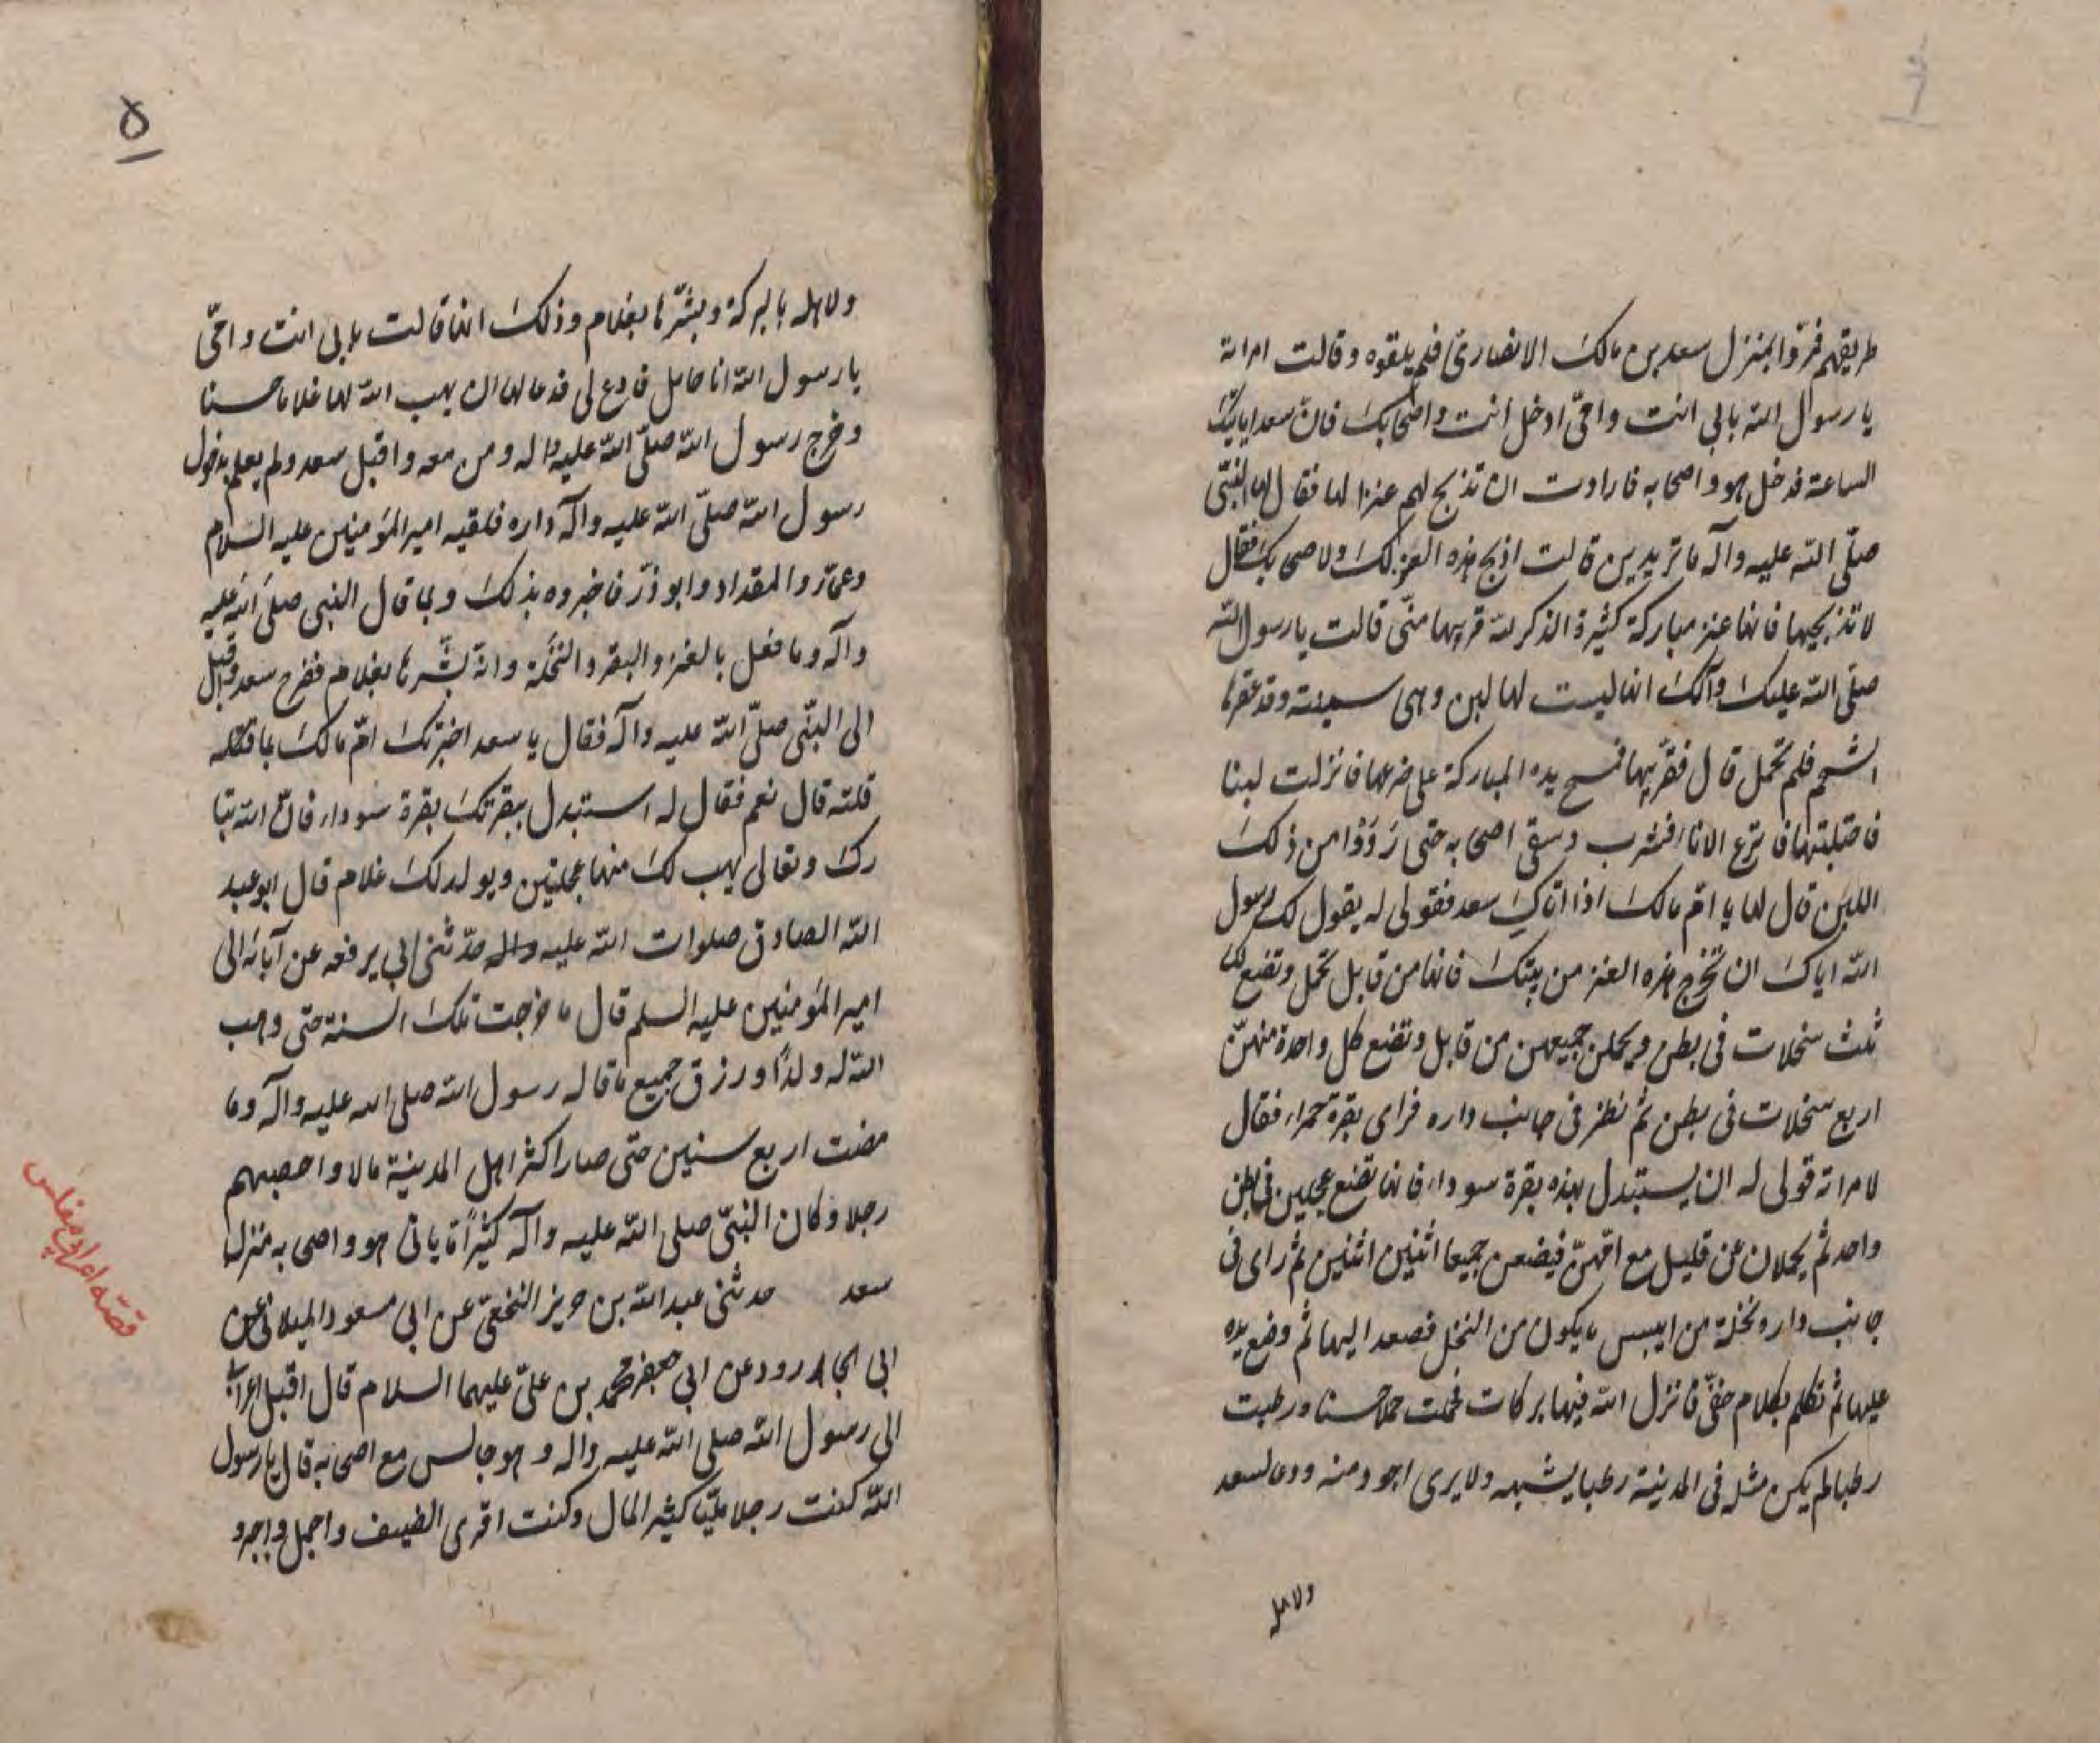 طريقهم فمرّوا بمنزل سعد بن مالك الانصاري فلم يلقوه وقالت امراته
يا رسول الله بابي انت وامّي ادخل انت واصحابك فان سعدا ياتيك
الساعة فدخل هو واصحابه فارادت ان تذبح لهم عنزا لها فقال لها النبيّ
صلّى الله عليه وآله ما تريدين قالت اذبح هذه العنز لك ولاصحابك فقال
لا تذبحيها فانها عنز مباركة كثيرة الذكر لله قربيها منّي قالت يا رسول الله
صلّى الله عليك وآلك انها ليست لها لبن وهي سمينة وقد عقرها
الشحم فلم تحمل قال فقرّبيها فمسح يده المباركة على ضرعها فانزلت لبنا
فاحتلبتها فاترع الانا فشرب وسقى اصحابه حتى رَوَوْا من ذلك
اللبن قال لها يا امّ مالك اذا اتاكِ سعد فقولي له يقول لك رسول
الله اياك ان تخرج هذه العنز من بيتك فانها من قابل تحمل وتضع لك
ثلث سخلات في بطن ويحملن جميعهن من قابل وتضع كل واحدة منهنّ
اربع سخلات في بطن ثم نظر في جانب داره فراى بقرة حمراء فقال
لامراته قولي له ان يستبدل بهذه بقرة سوداء فانها تضع عجلين في بطن
واحد ثم يحملان عن قليل مع امّهنّ فيضعن جميعا اثنين اثنين ثم راى في
جانب داره نخلة من ايبس ما يكون من النخل فصعد اليها ثم وضع يده
عليها ثم تكلم بكلام خفيّ فانزل الله فيها بركات فحملت حملا حسنا ورطبت
رطبا لم يكن مثله في المدينة رطبا يشبهه ولا يرى اجود منه ودعا لسعد
ولاهله
٥
ولاهله بالبركة وبشّرها بغلام وذلك انها قالت بابي انت وامّي
يا رسول الله انا حامل فادع لي فدعا لها ان يهب الله لها غلاما حسنا
وخرج رسول الله صلّى الله عليه واله ومن معه واقبل سعد ولم يعلم بدخول
رسول الله صلّى الله عليه وآله داره فلقيه امير المؤمنين عليه السّلام
وعمّار والمقداد وابو ذرّ فاخبروه بذلك وبما قال النبي صلّى الله عليه
وآله وما فعل بالعنز والبقر والنّخلة وانه بشّرها بغلام ففرح سعد واقبل
الى النبّي صلّى الله عليه وآله فقال يا سعد اخبرتك امّ مالك بما
قلته قال نعم فقال له استبدل ببقرتك بقرة سوداء فانّ الله تبا
رك وتعالى يهب لك منها عجلتين ويولد لك غلام قال ابو عبد
الله الصادق صلوات الله عليه واله حدّثني ابي يرفعه عن آبائه الى
امير المؤمنين عليه السلم قال ما خرجت تلك السنة حتى وهب
الله له ولدًا ورزق جميع ما قاله رسول الله صلى الله عليه وآله وما
مضت اربع سنين حتى صار اكثر اهل المدينة مالا واخصبهم
رجلا وكان النبيّ صلى الله عليه وآله كثيرًا ما ياتي هو واصحابه منزل
سعد حدثني عبد الله بن حريز النخعيّ عن ابي مسعود الميلاني عن
ابي الجارود عن ابي جعفر محمد بن عليّ عليهما السلام قال اقبل اعرابي
الى رسول الله صلى الله عليه واله وهو جالس مع اصحابه قال يا رسول
الله كنت رجلا مليّا كثير المال وكنت اقري الضيف واحمل واجير و
قصّه اعرابي مفلس